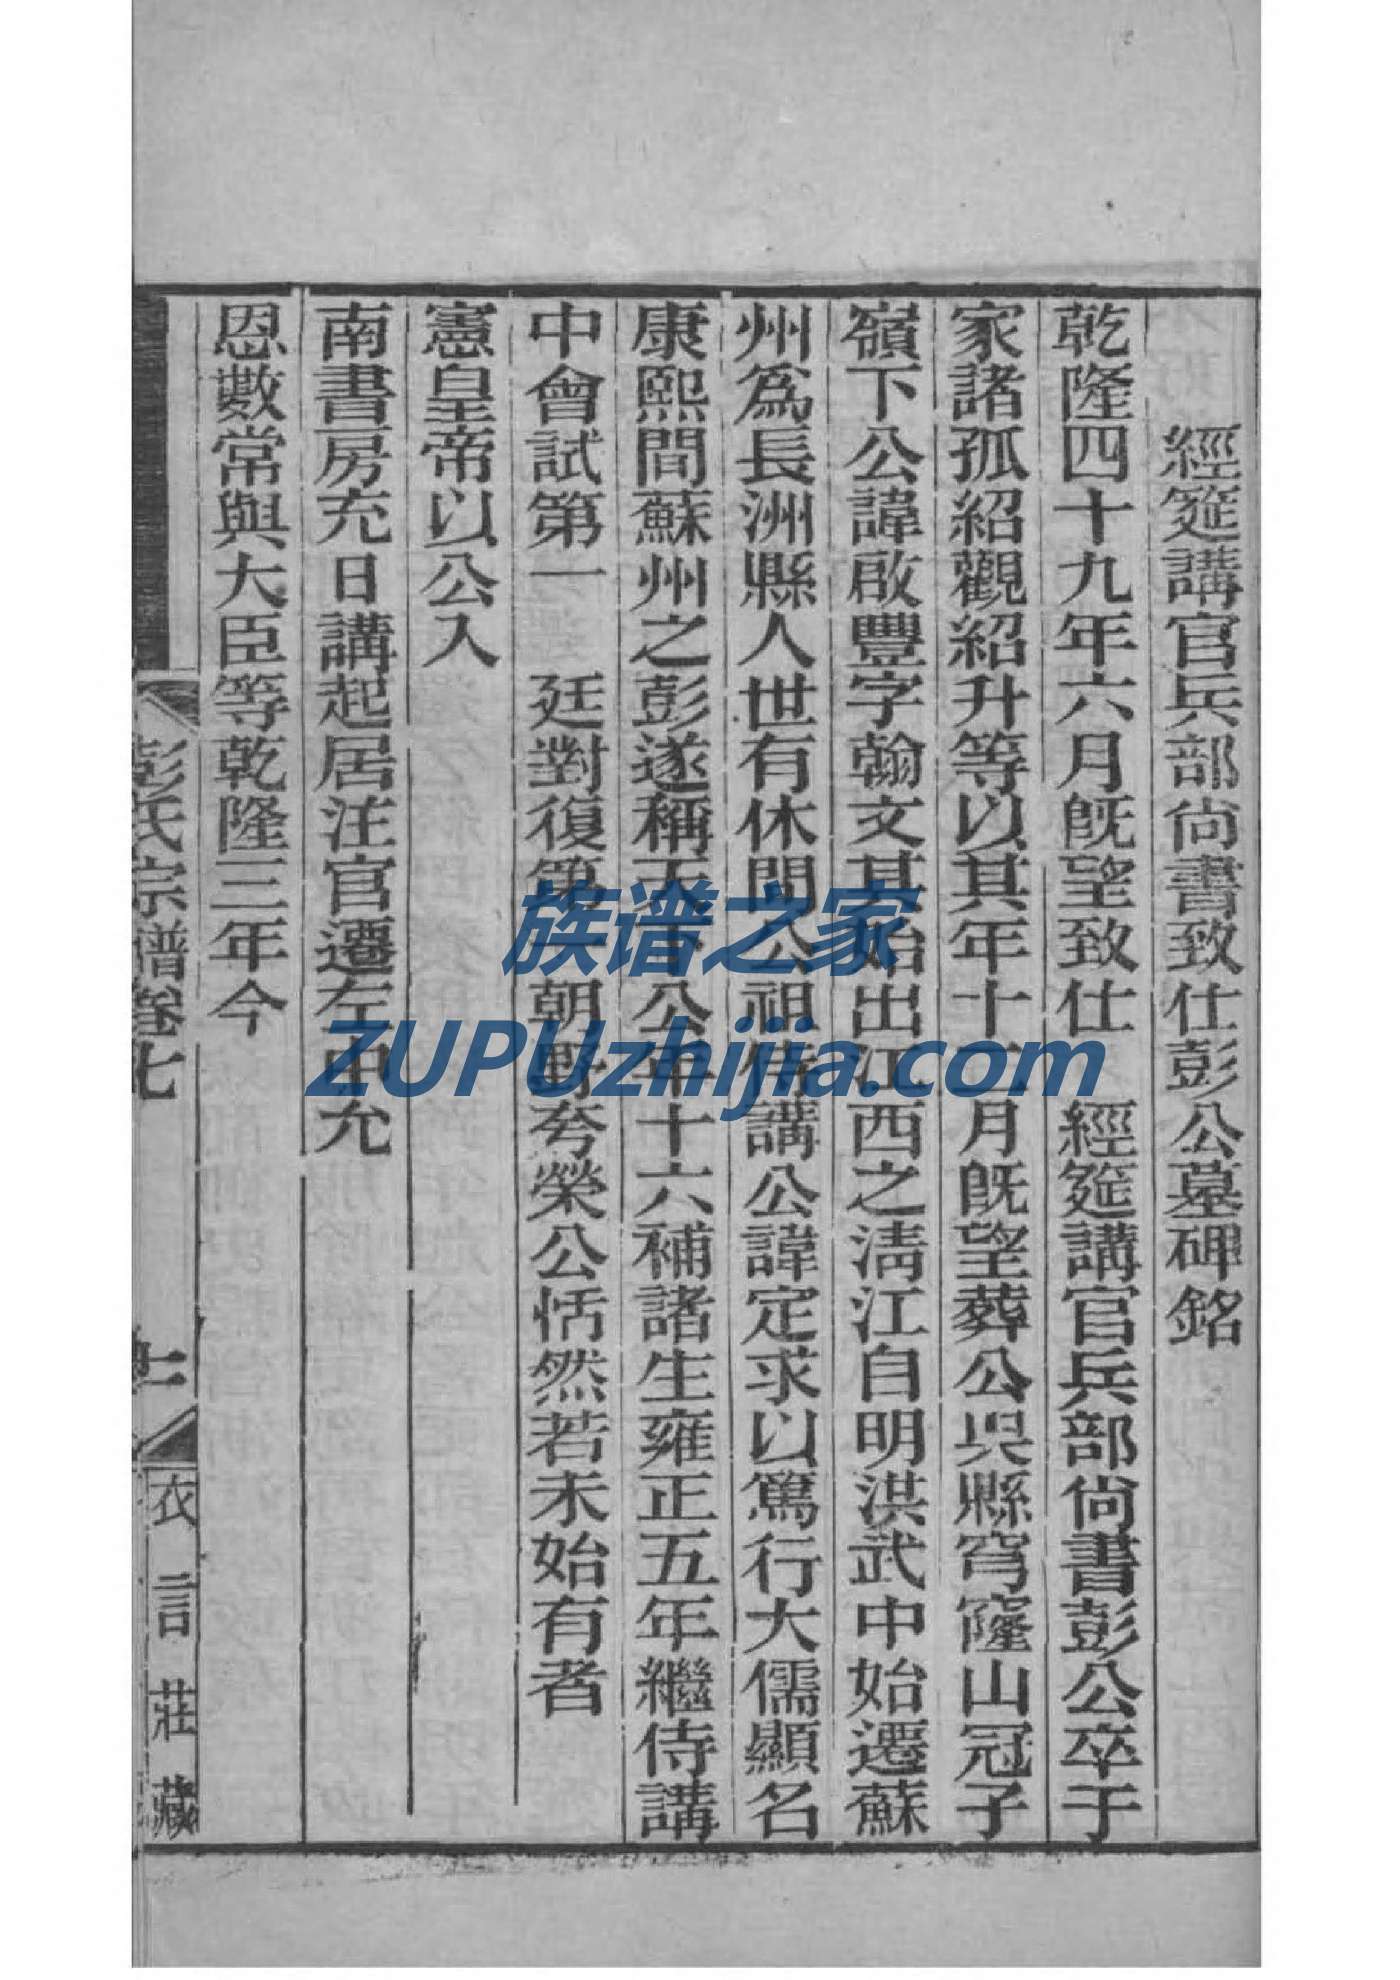 經筵講官兵部尙書致仕彭公墓碑銘
乾隆四十九年六月旣望致仕 經筵講官兵部尙書彭公卒于
家諸孤紹觀紹升等以其年十二月旣望葬公吳縣穹窿山冠子
嶺下公諱啟豐字翰文其始出江西之淸江自明洪武中始遷蘇
州爲長洲縣人世有休閒公祖侍講公諱定求以篤行大儒顯名
康熙間蘇州之彭遂稱天下公年十六補諸生雍正五年繼侍講
中會試第一 廷對復第一朝野夸榮公恬然若未始有者
憲皇帝以公入
南書房充日講起居注官遷左中允
恩數常與大臣等乾隆三年今
彭氏宗譜卷七
衣言莊藏
族谱之家
ZUPUzhijia.com